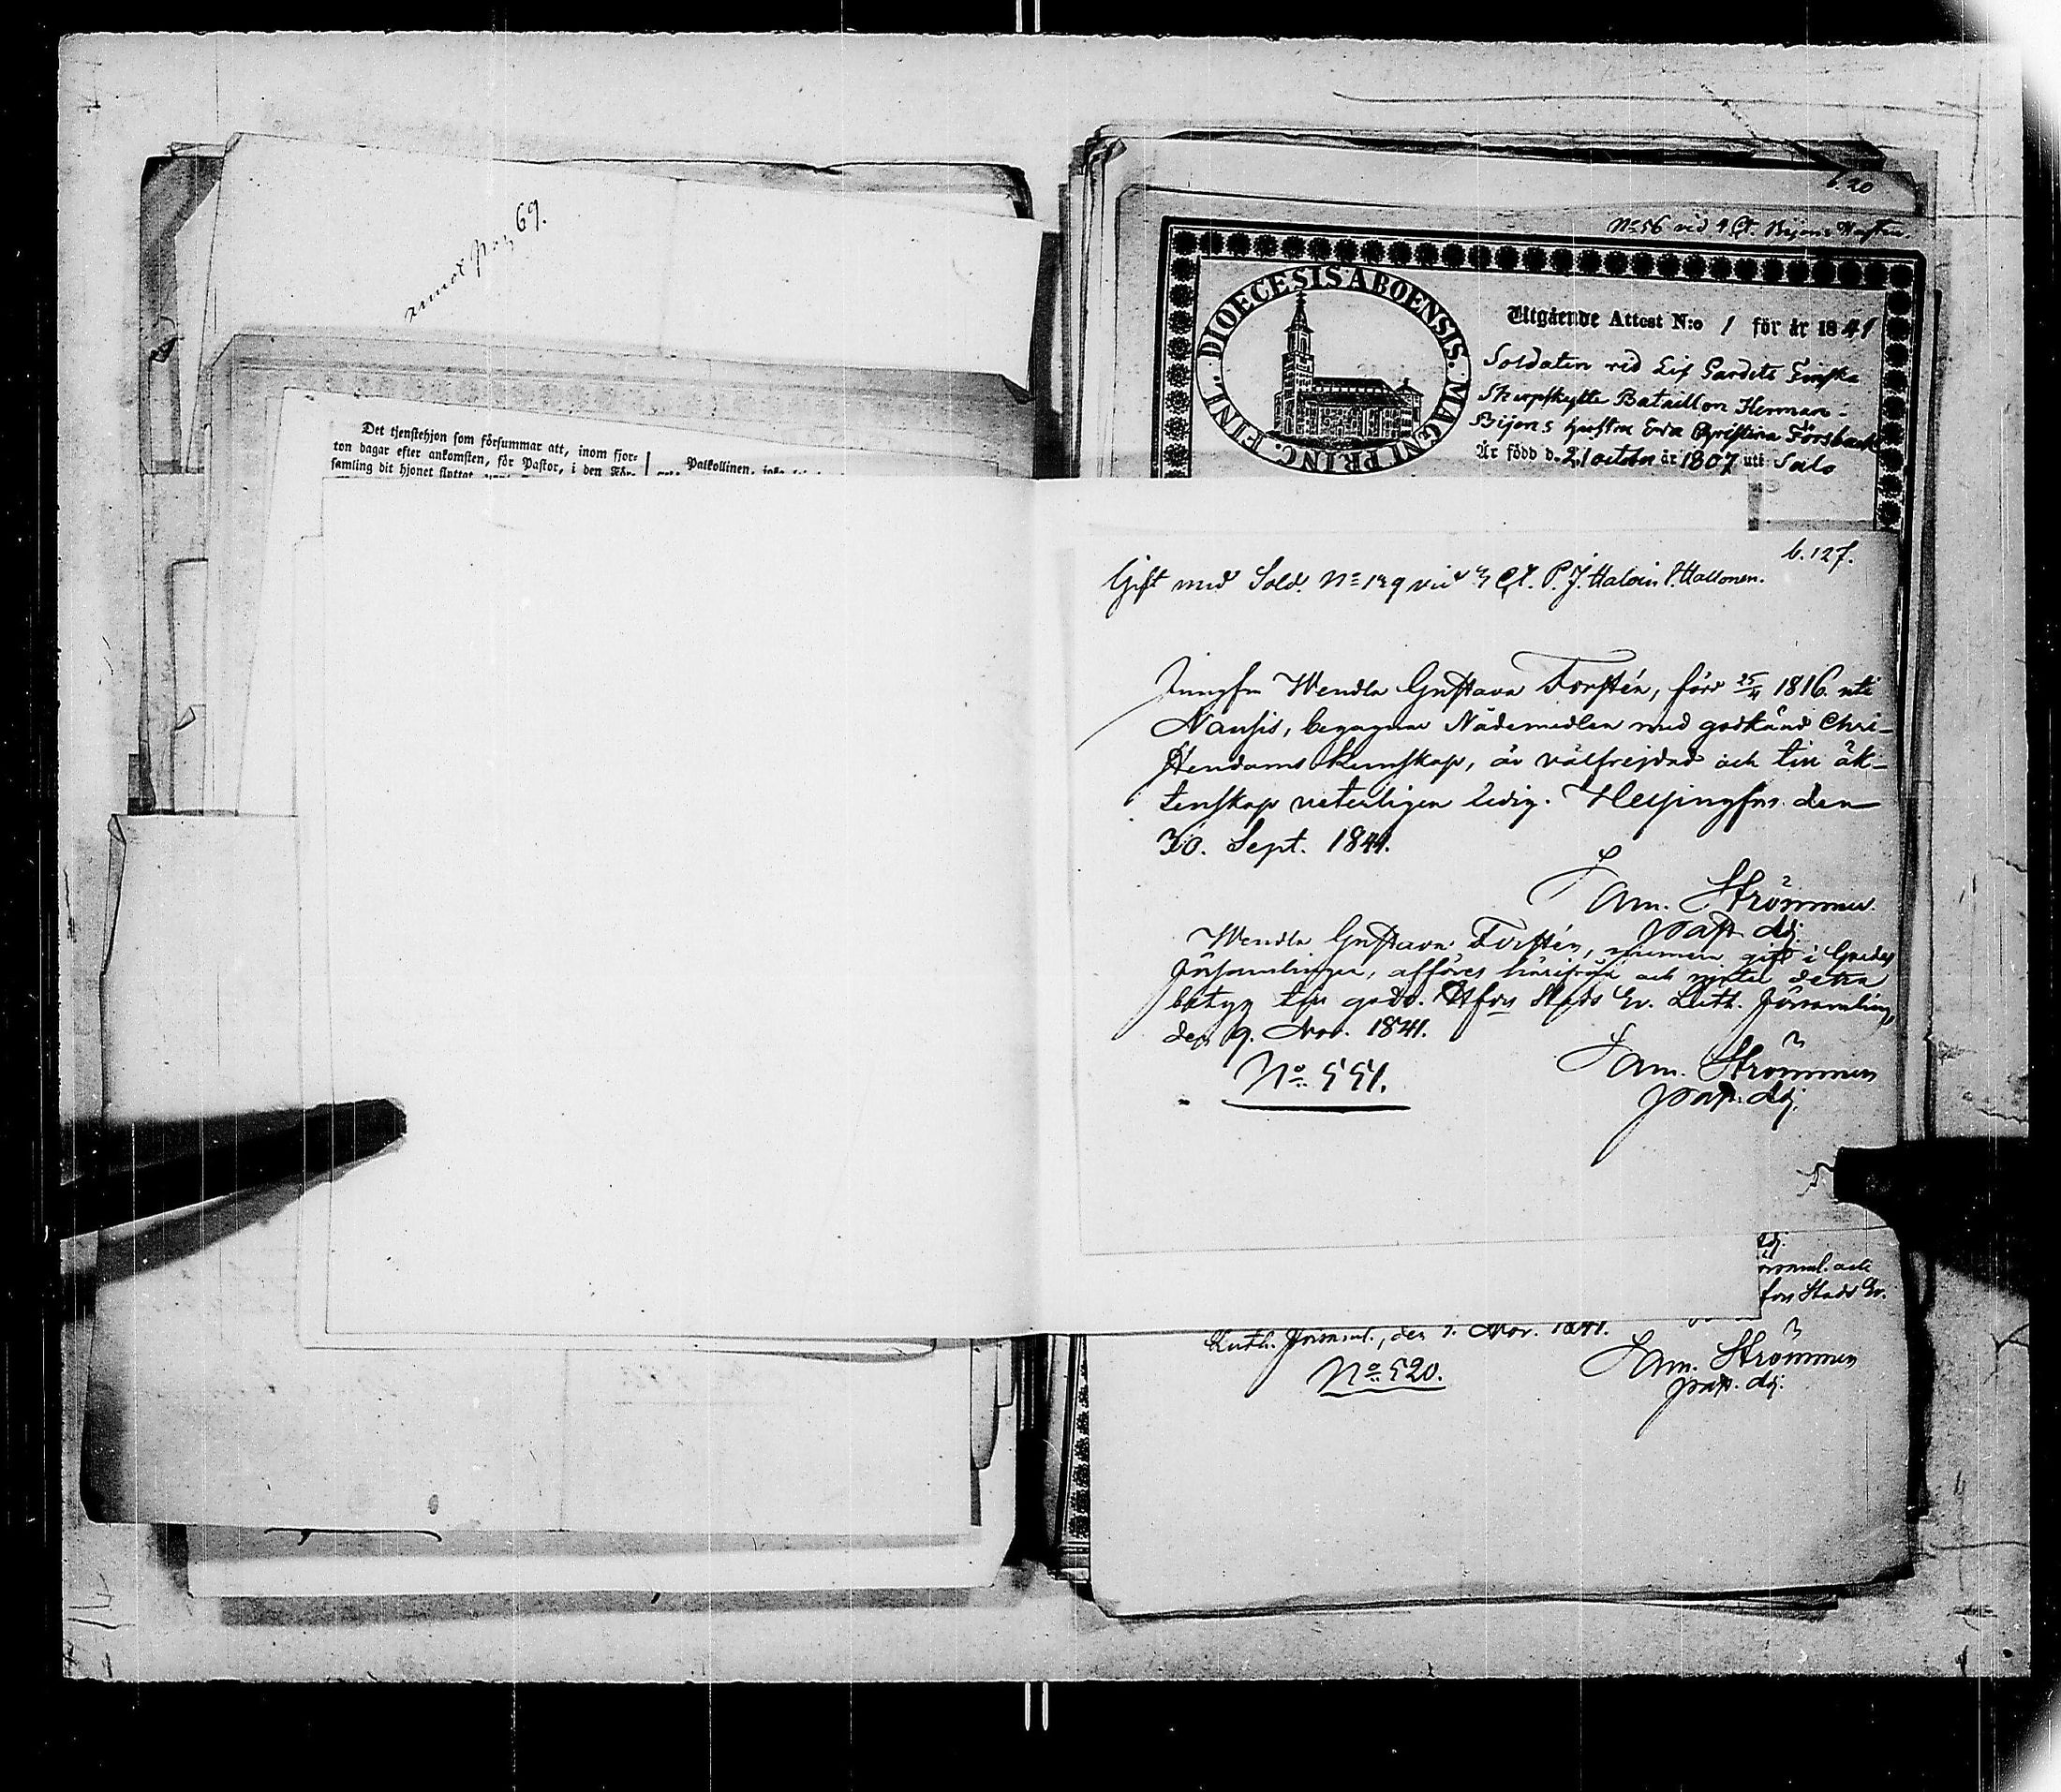 69.
Det tjenstehjon som försummar att, inom fjor-
ton dagar efter ankomsten, för Pastor, i den För-
samling dit hjonet flyttat
Palkollinen,
b. 20
No 56 vid 4 Ct. Bijons Hustru.
DIOECESIS ABOENSIS. MAGNI PRINC. FINL.
Utgående Attest N:o 1 för år 1841
Soldaten vid Lif Gardets Finska
Skarpskytte Bataillon Herman
Bijons hustru Eva Christina Forsback
Är född d. 21 octobr år 1807 uti Salo
b. 127.
Gift med Sold. No 129 vid 3 Ct. P. J. Haloin l. Hallonen.
Jungfru Wendla Gustava Forstén, född 25/4 1816 uti
Nousis, begagnar Nådemedlen med godkänd Chri-
stendoms kunskap, är välfrejdad och till äk-
tenskap veterligen ledig. Helsingfors den
30. Sept. 1841.
Sam. Strömmer.
past. Adj.
Wendla Gustava Forstén, numera gift i Gardes
församlingen, afföres härifrån och njuter detta
betyg till godo. H:fors Stads Ev. Luth. församling,
den 9. Nov. 1841.
No 551.
Sam. Strömmer
past. Adj.
Adj.
församl. och
fors Stads Ev.
Luth. församl., den 1. Nov. 1841.
No 520.
Sam. Strömmer
past. Adj.